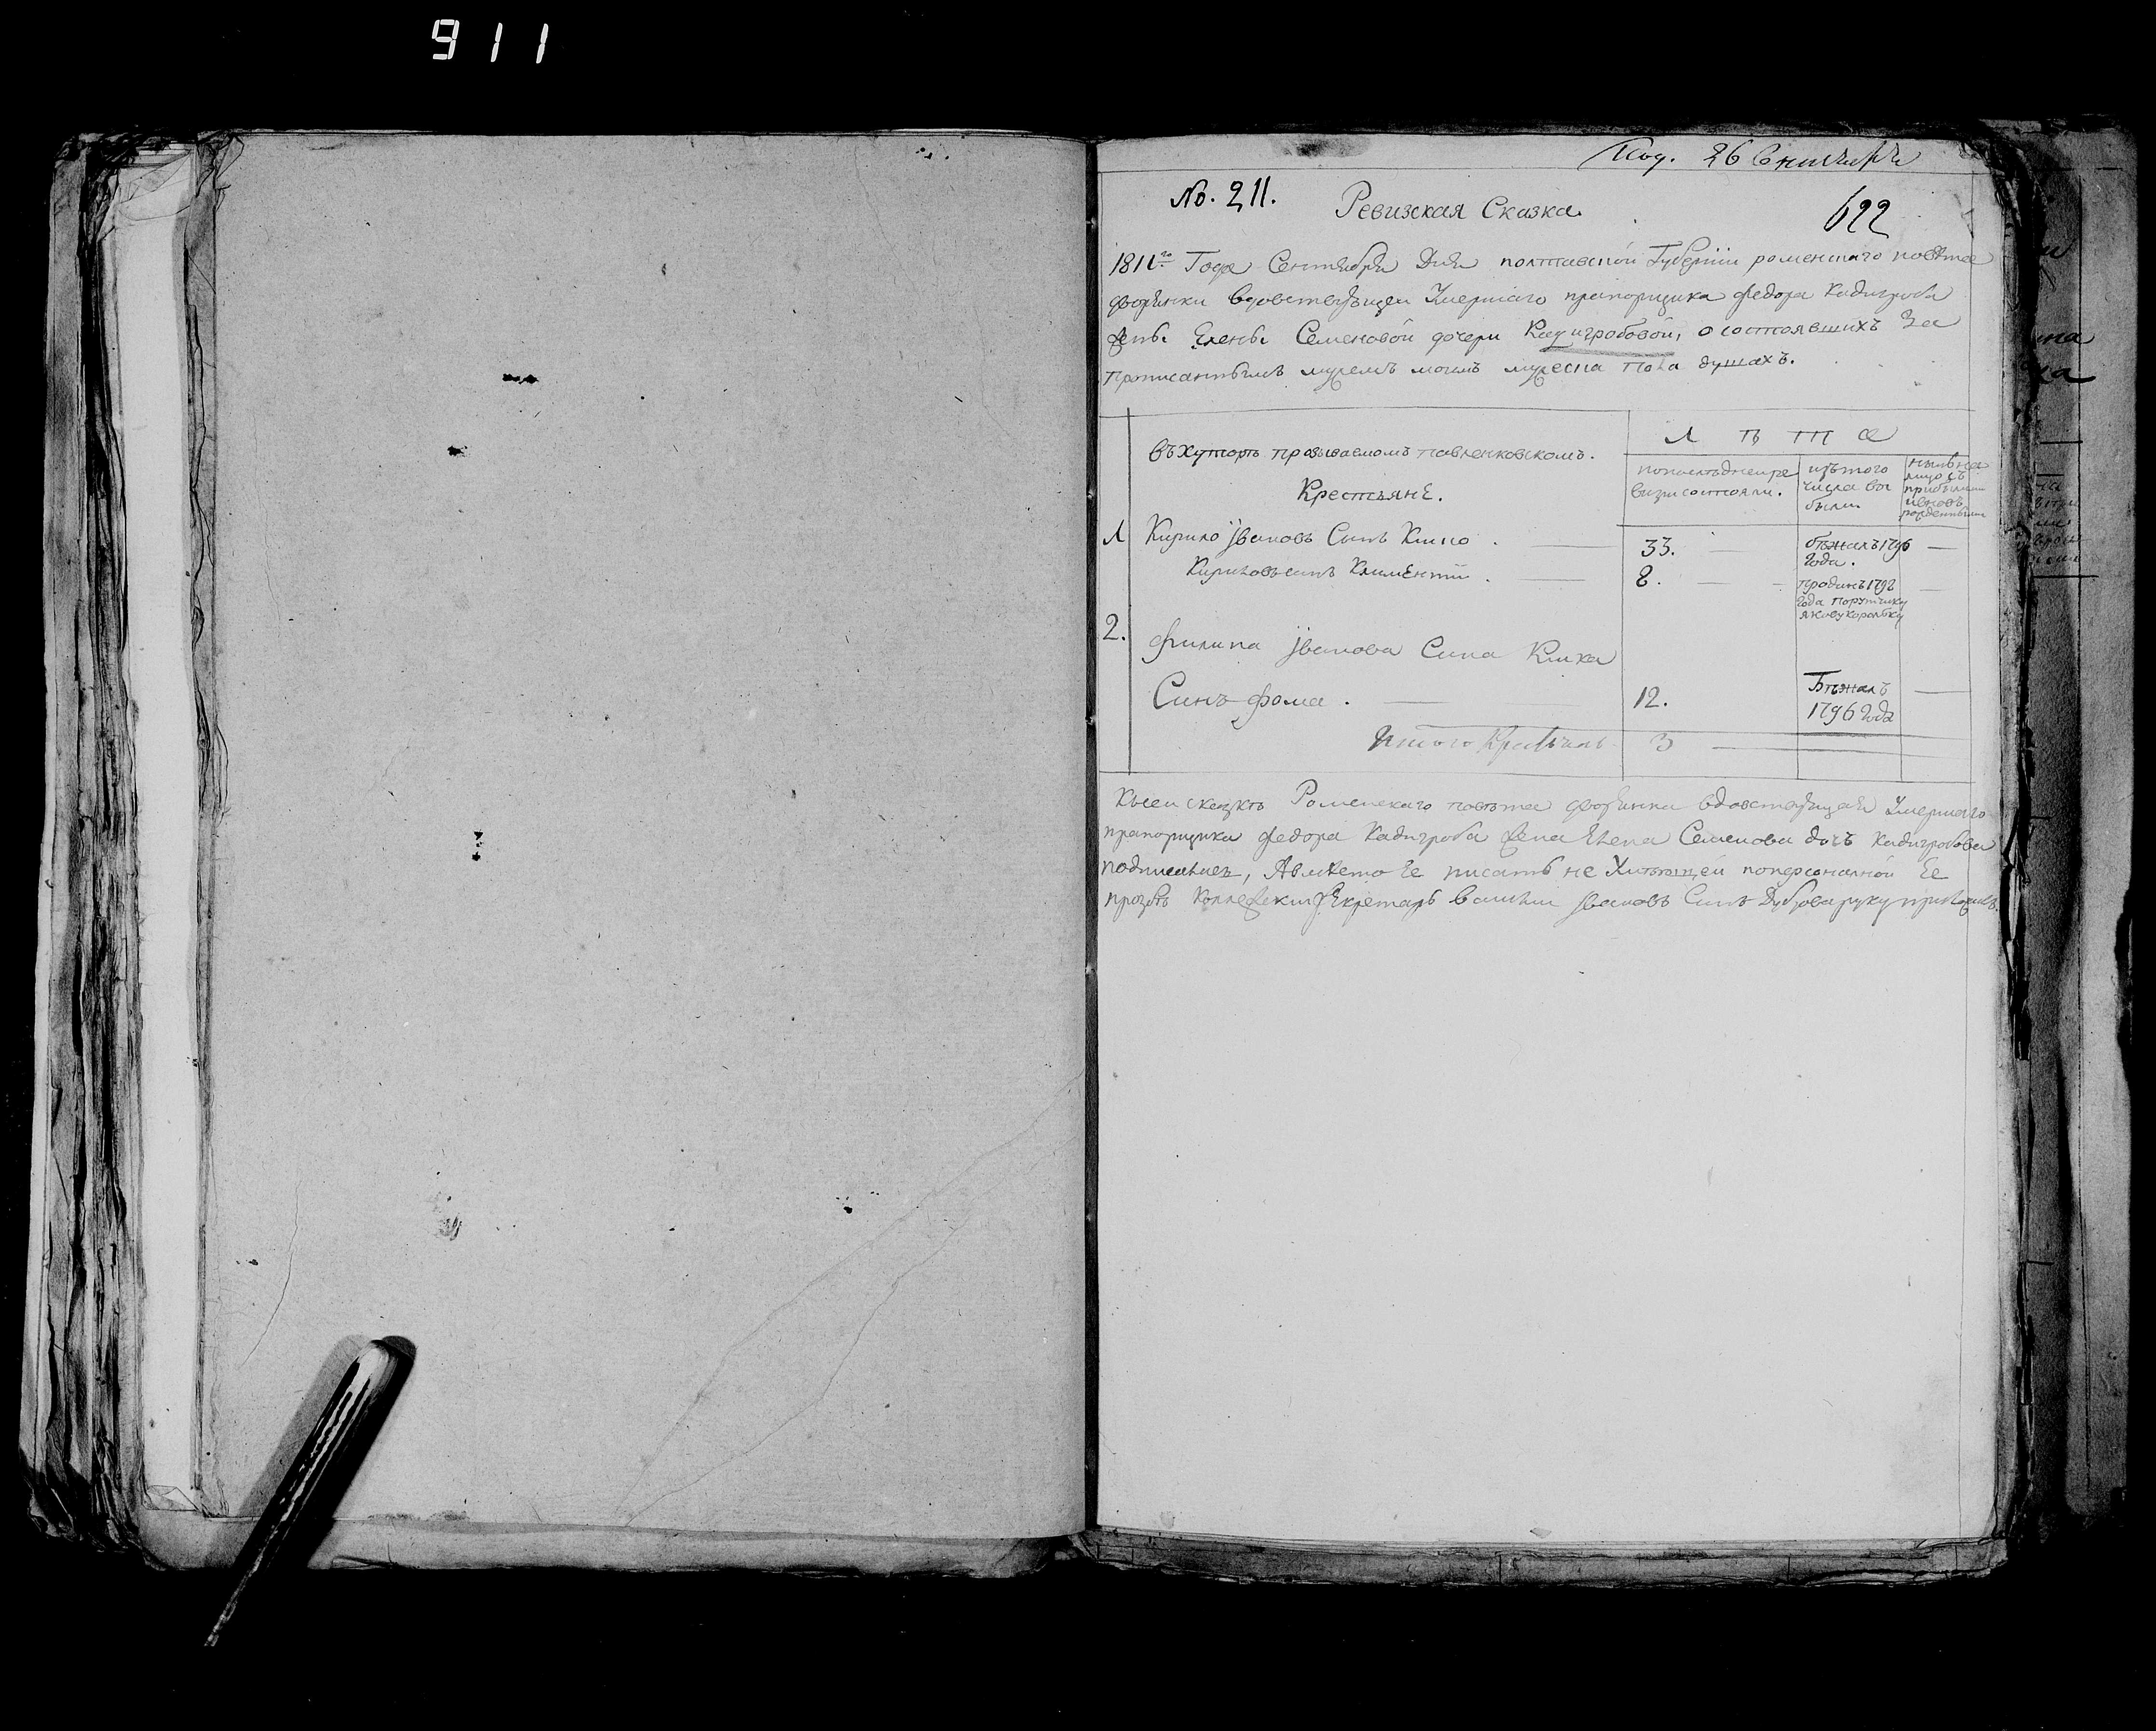 911
Под. 26 Сентября
№. 211.
Ревизская Сказка.
622
1811го Года Сентября Дня полтавской Губернии роменского повѣта
дворянки вдовствующеи Умершаго прапорщика Федора Кадигроба
жены Елены Семеновой дочери Кадигробовой, о состоявшихъ За
прописаннымъ мужемъ моимъ мужеска пола душахъ.
Л ѣ т а
въ Хуторѣ прозываемомъ павленковскомъ.
попослѣднеи ре
визи состояли.
изъ того
числа вы
были
ныне на
лицо съ
прибылими
ивновъ
рожденными
Крестьяне.
1 Кирило Ивановъ Сынъ Клико . 33. бѣжалъ 1796
года.
Кириловъ сынъ Климентий . 8. проданъ 1798
года Порутчику
якову коробку
2. филипа Иванова Сина Клика
Синъ фома . 12. Бѣжалъ
1796 года
Итого Крестьянъ 3
Ксеи сказкѣ Роменскаго повѣта дворянка вдовствующая Умершаго
прапорщика Федора Кадигроба жена Елена Семенова дочь Кадигробова
подписалась, Авместо Ее писать не Умѣющей поперсоналной Ее
прозбѣ Коллежский Секретарь василии Ивановъ Синъ Дуброва руку приложилъ.